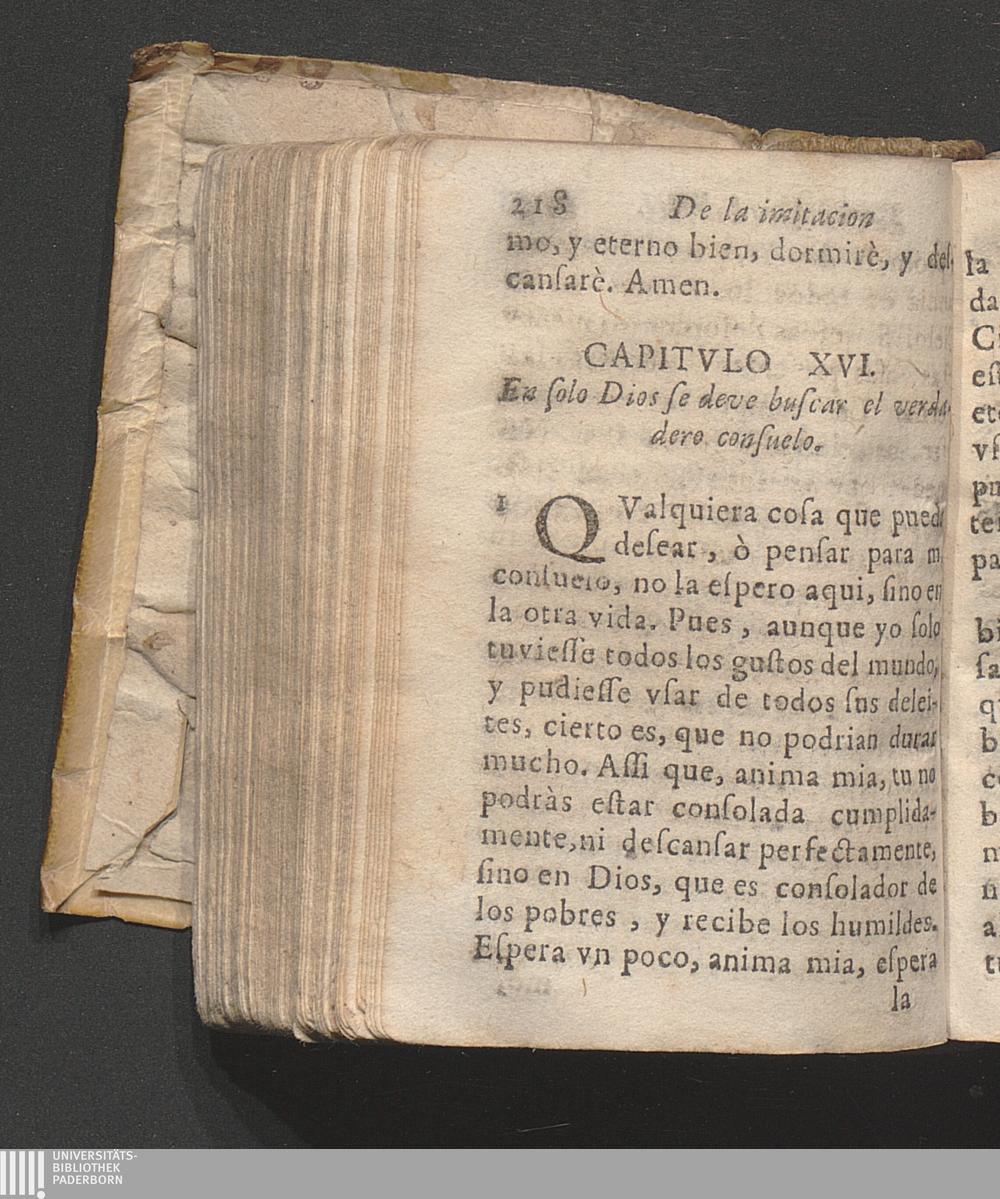 218 De la imitacion
mo, y eterno bien, dormirè, y deſ-
canſarè. Amen.
CAPITVLO XVI.
En ſolo Dios ſe deve buſcar el verda-
dero conſuelo.
1 QValquiera coſa que puedo
deſear, ò penſar para m
conſuelo, no la eſpero aqui, ſino en
la otra vida. Pues, aunque yo ſolo
tuvieſſe todos los guſtos del mundo,
y pudieſſe vſar de todos ſus delei-
tes, cierto es, que no podrian durar
mucho. Aſſi que, anima mia, tu no
podràs eſtar conſolada cumplida-
mente, ni deſcanſar perfectamente,
ſino en Dios, que es conſolador de
los pobres, y recibe los humildes.
Eſpera vn poco, anima mia, eſpera
la
la
da
UNIVERSITÄTS-
BIBLIOTHEK
PADERBORN